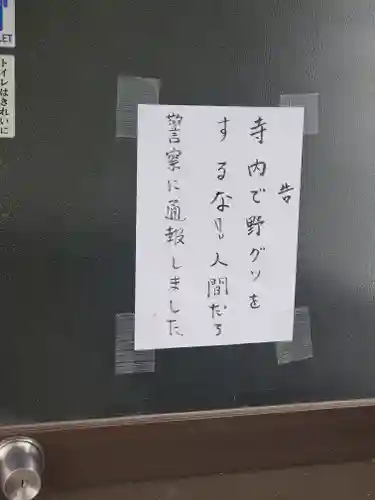 告
寺内で野グソを
するな!!人間だろ
警察に通報しました
LET
トイレはきれいに